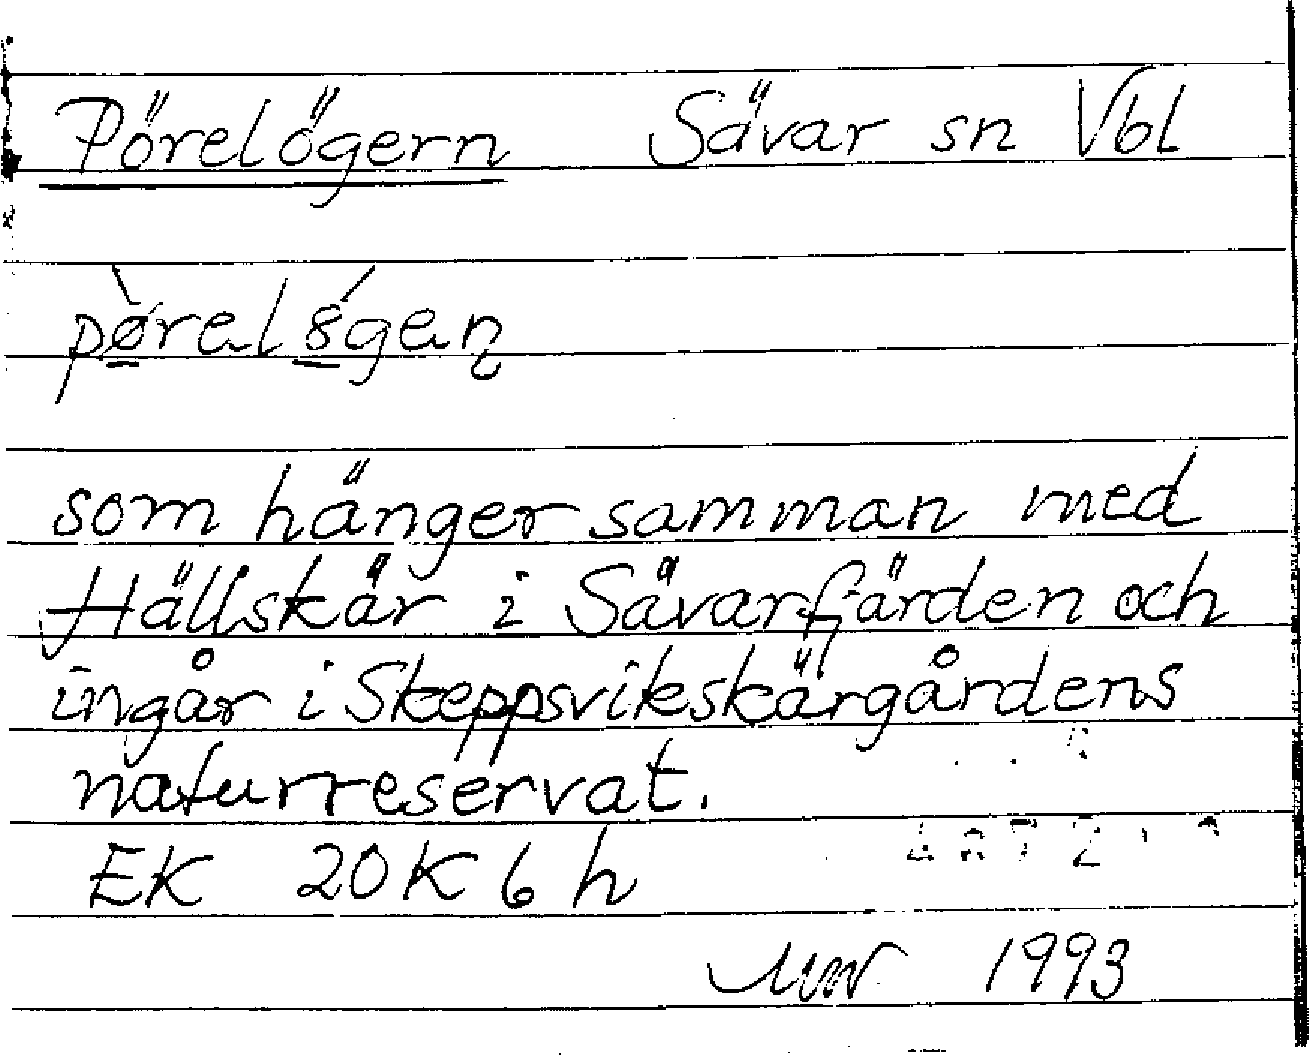 Pörelögern Sävar sn Vbl
som hänger samman med
Hällskär i Sävarfjärden och
ingår i Skeppsvikskärgårdens
naturreservat.
EK 20K 6 h
1993